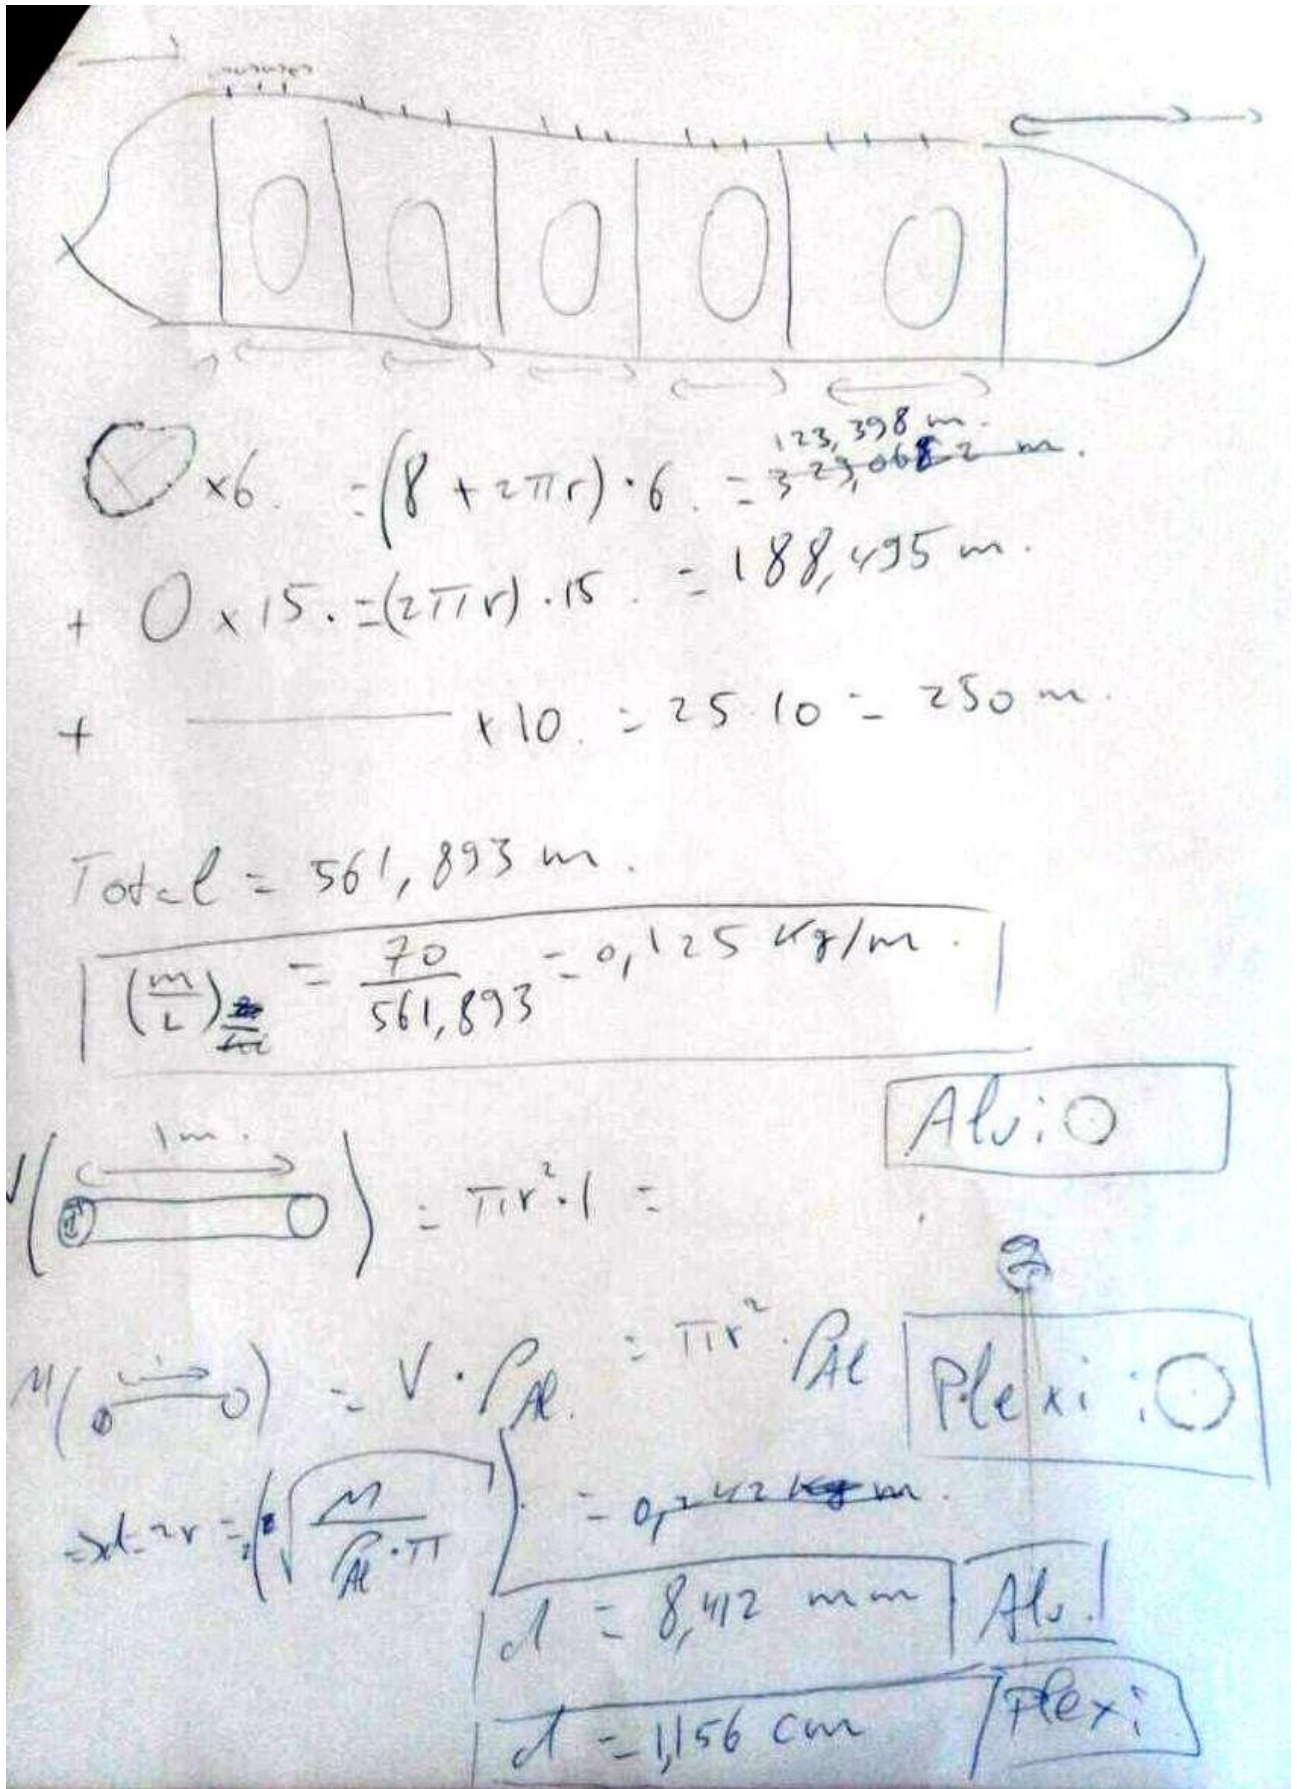 ×6 = (8 + 2πr) · 6 = 123,398 m.
+ 0 × 15. = (2πr) · 15 = 188,495 m.
+ ——— × 10. = 25 · 10 = 250 m.
Total = 561,893 m.
(m/L) = 70/561,893 = 0,125 Kg/m.
Alu: O
1 m.
V( ) = πr² · 1 =
M( ) = V · ρAl. = πr² · ρAl
Plexi: O
=> d = 2r = 2(√(M/(ρAl · π))) = 0,242 Kg m.
d = 8,412 mm Alu.
d = 1,156 cm Plexi